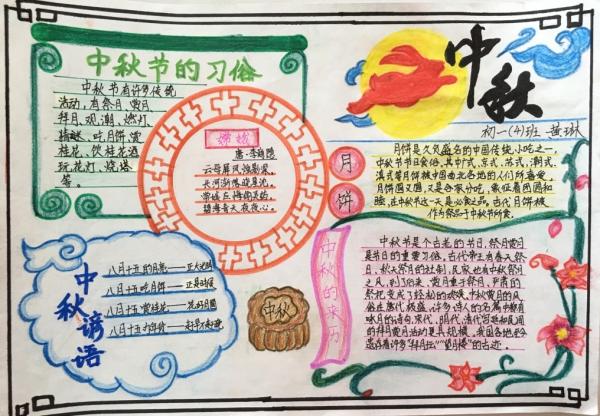 中秋节的习俗
中秋节有许多传统
活动,有祭月、赏月
拜月、观潮、燃灯
猜谜、吃月饼、赏
桂花、饮桂花酒
玩花灯、烧塔
等。
嫦娥
唐·李商隐
云母屏风烛影深,
长河渐落晓星沉。
嫦娥应悔偷灵药,
碧海青天夜夜心。
中秋
初一(4)班 黄琳
月饼
月饼是久负盛名的中国传统小吃之一,
中秋节节日食俗。其中广式、京式、苏式、潮式、
滇式等月饼被中国南北各地的人们所喜爱。
月饼圆又圆,又是合家分吃,象征着团圆和
睦,在中秋节这一天是必食之品。古代月饼被
作为祭品于中秋节所食。
中秋谚语
八月十五的月亮——正大光明
八月十五吃月饼——正是时候
八月十五赏桂花——花好月圆
八月十五办年货——赶早不赶晚
中秋
中秋的来历
中秋节是个古老的节日,祭月赏月
是节日的重要习俗。古代帝王有春天祭
日,秋天祭月的社制,民家也有中秋祭月
之风,到了后来,赏月重于祭月,严肃的
祭祀变成了轻松的欢娱。中秋赏月的风
俗在唐代极盛,许多诗人的名篇中都有
咏月的诗句,宋代、明代、清代宫廷和民间
的拜月赏月活动更具规模。我国各地至今
还存着许多“拜月坛”“望月楼”的古迹。